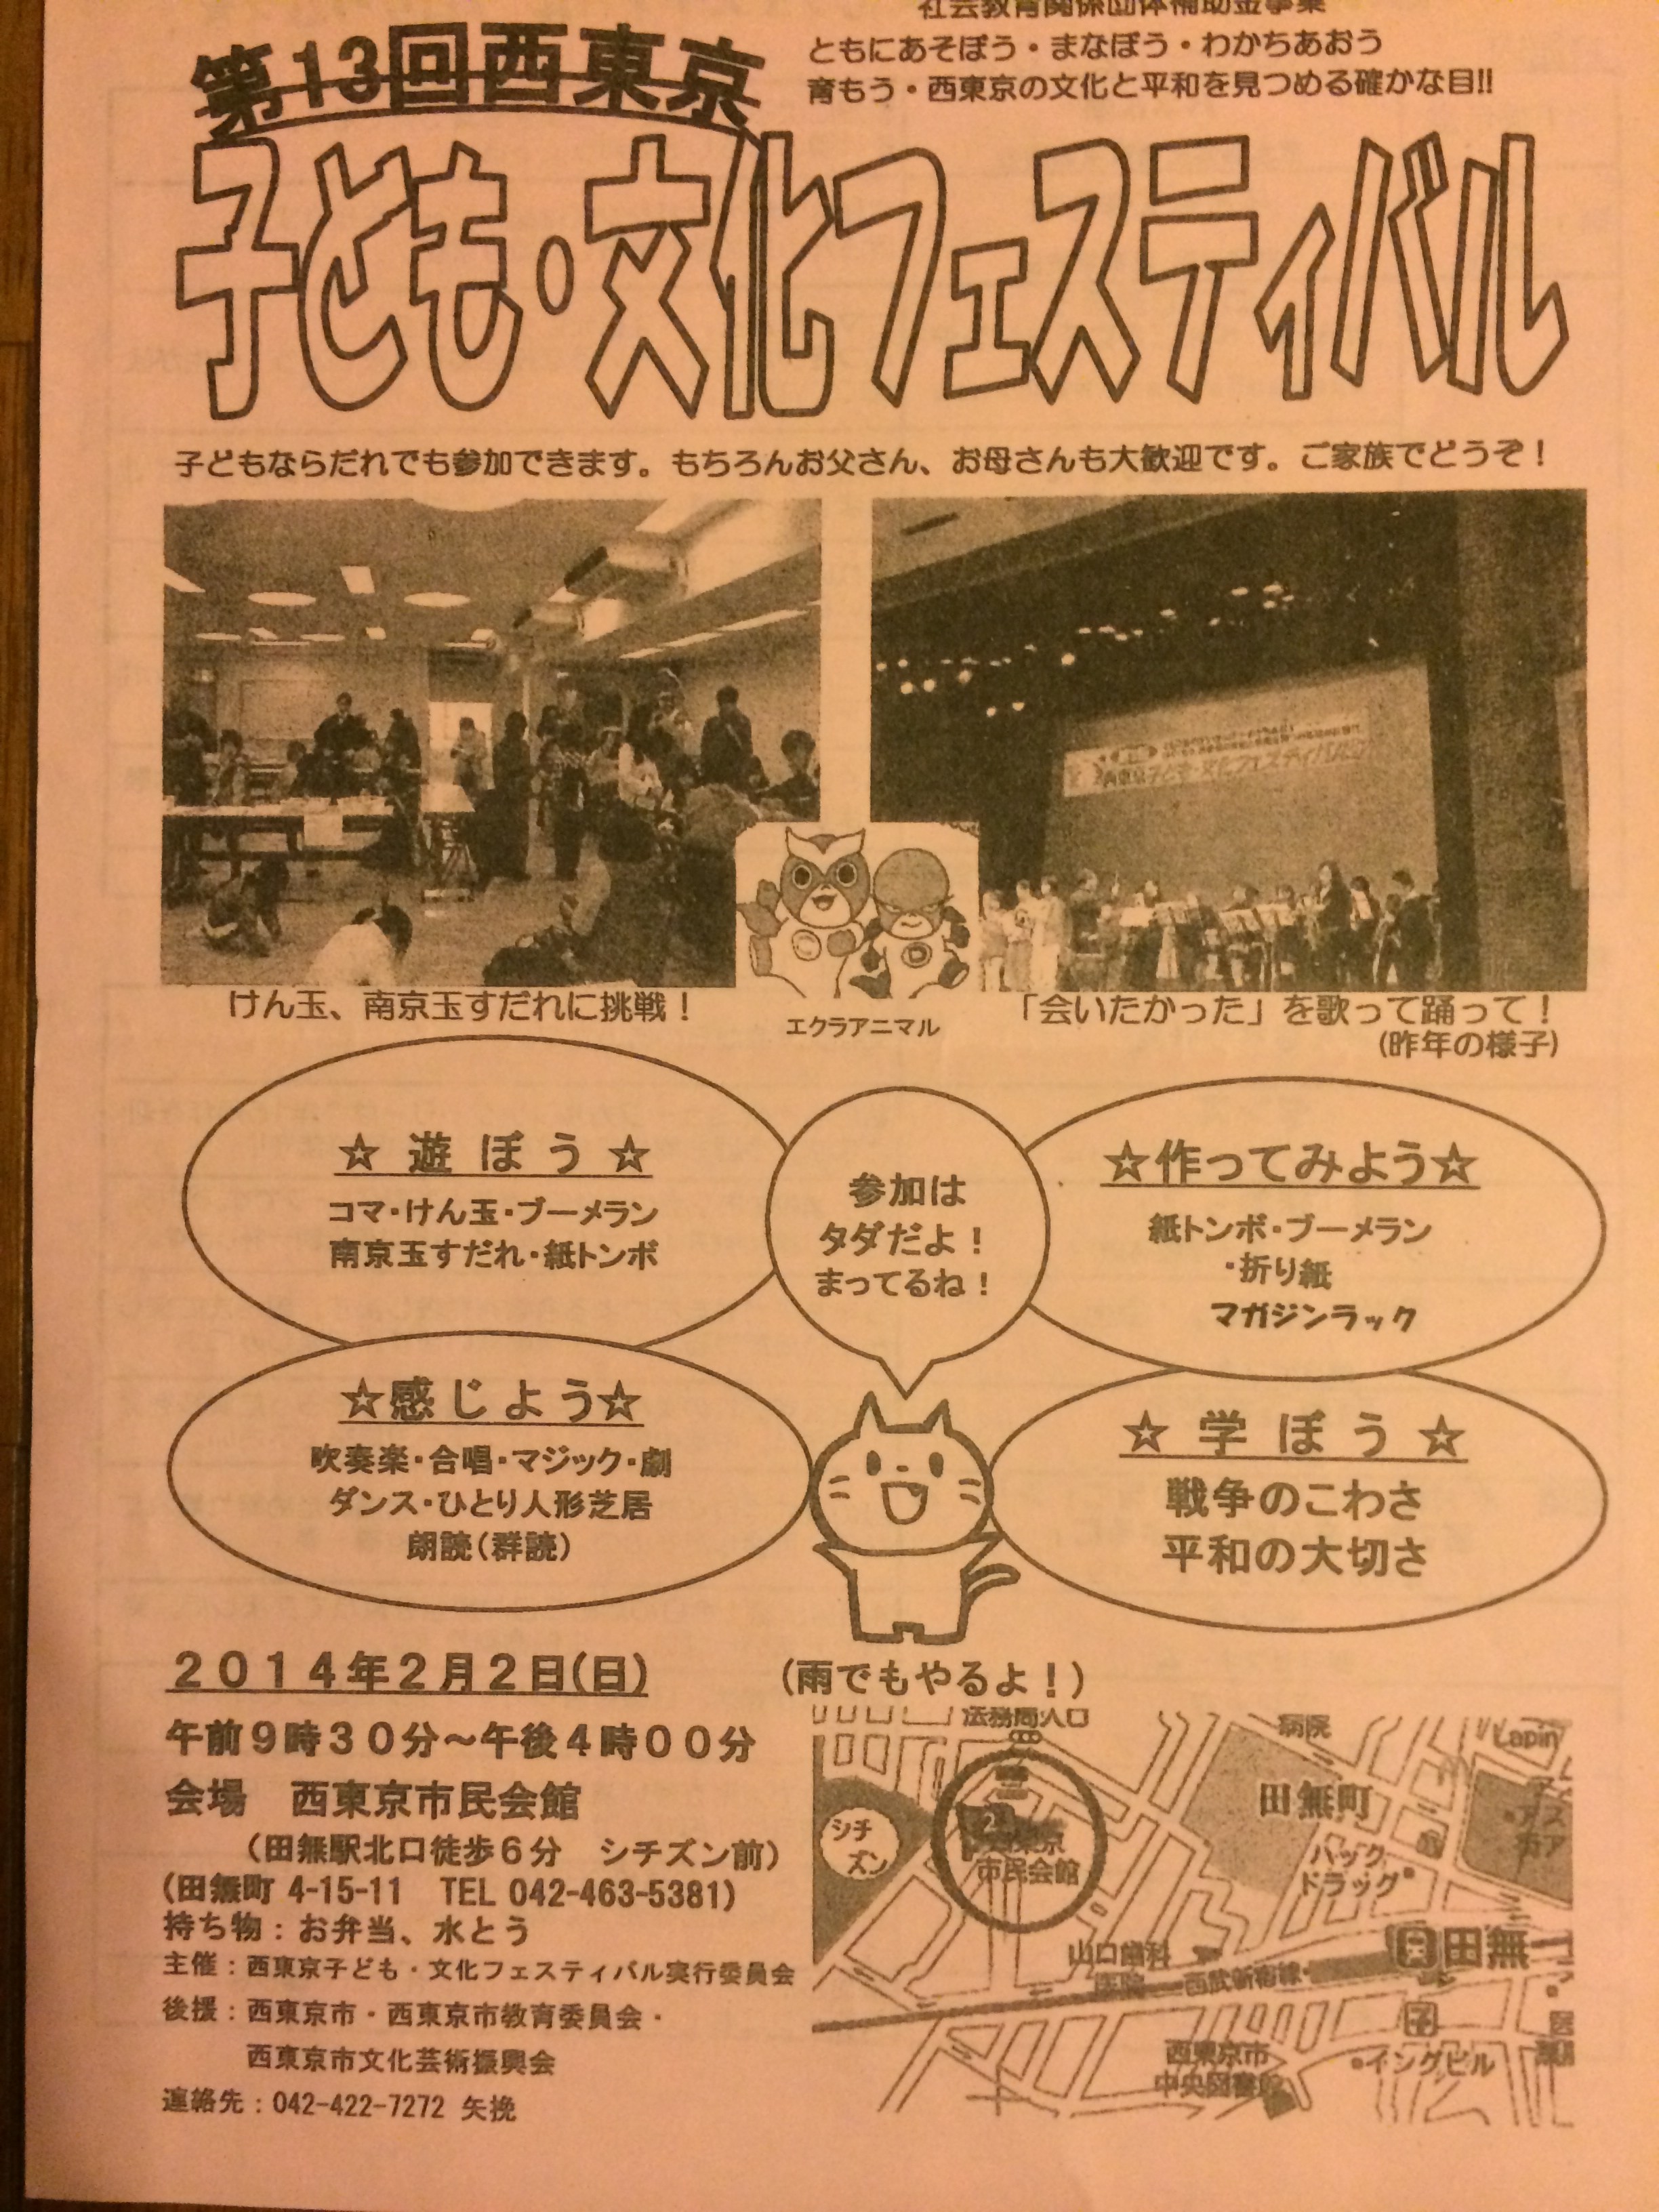 社会教育関係団体補助金事業
ともにあそぼう・まなぼう・わかちあおう
育もう・西東京の文化と平和を見つめる確かな目!!
第13回西東京
子ども・文化フェスティバル
子どもならだれでも参加できます。もちろんお父さん、お母さんも大歓迎です。ご家族でどうぞ！
西東京子ども・文化フェスティバル
けん玉、南京玉すだれに挑戦！
エクラアニマル
「会いたかった」を歌って踊って！
(昨年の様子)
☆ 遊 ぼ う ☆
コマ・けん玉・ブーメラン
南京玉すだれ・紙トンボ
参加は
タダだよ！
まってるね！
☆作ってみよう☆
紙トンボ・ブーメラン
・折り紙
マガジンラック
☆感 じ よ う☆
吹奏楽・合唱・マジック・劇
ダンス・ひとり人形芝居
朗読(群読)
☆ 学 ぼ う ☆
戦争のこわさ
平和の大切さ
２０１４年２月２日(日)
(雨でもやるよ！)
午前９時３０分～午後４時００分
会場　西東京市民会館
（田無駅北口徒歩６分　シチズン前）
(田無町 4-15-11　TEL 042-463-5381)
持ち物：お弁当、水とう
主催：西東京子ども・文化フェスティバル実行委員会
後援：西東京市・西東京市教育委員会・
西東京市文化芸術振興会
連絡先：042-422-7272 矢挽
法務局入口
病院
Lapin
田無町
シチ
ズン
西東京
市民会館
パック
ドラッグ
アス
山口歯科
医院
西武新宿線
田無
西東京市
中央図書館
イングビル